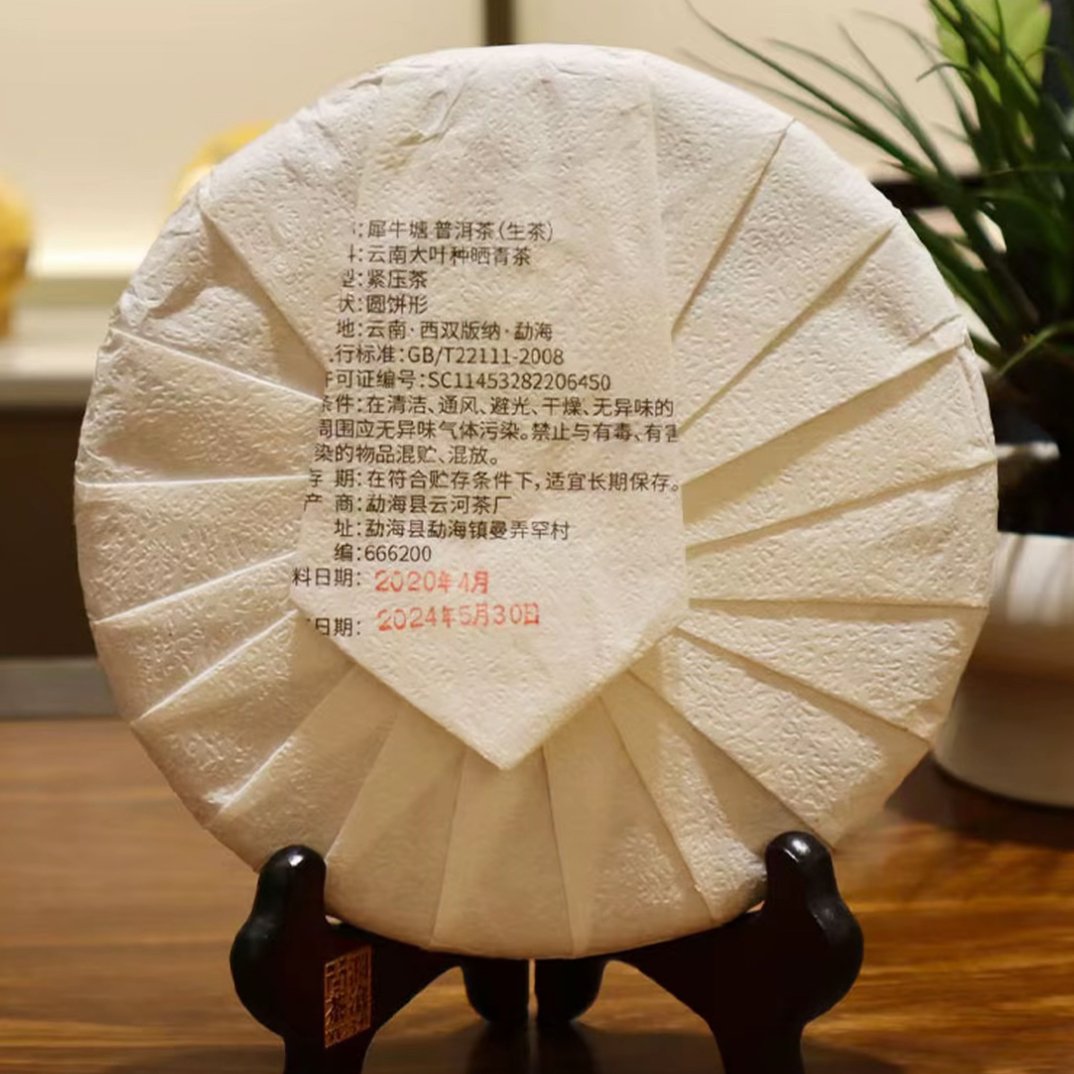 :犀牛塘 普洱茶(生茶)
:云南大叶种晒青茶
型:紧压茶
状:圆饼形
地:云南·西双版纳·勐海
行标准:GB/T22111-2008
许可证编号:SC11453282206450
条件:在清洁、通风、避光、干燥、无异味的
周围应无异味气体污染。禁止与有毒、有害
染的物品混贮、混放。
存 期:在符合贮存条件下,适宜长期保存。
产 商:勐海县云河茶厂
址:勐海县勐海镇曼弄罕村
编:666200
料日期: 2020年4月
日期: 2024年5月30日